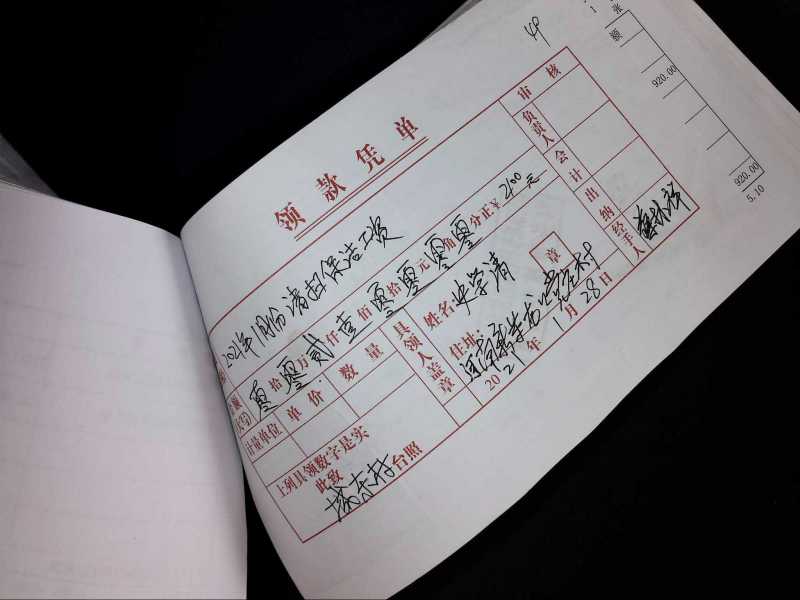 领款凭单
2021年1月份清扫保洁工资
零拾零万贰仟壹佰零拾零元零角零分正￥2100元
计量单位 单价 数量 具领人盖章 姓名 史学清 章
住址
2021年1月28日
上列具领数字是实
此致
台照
审核
负责人
会计
出纳
经手人
张
1
额
920.00
920.00
5.10